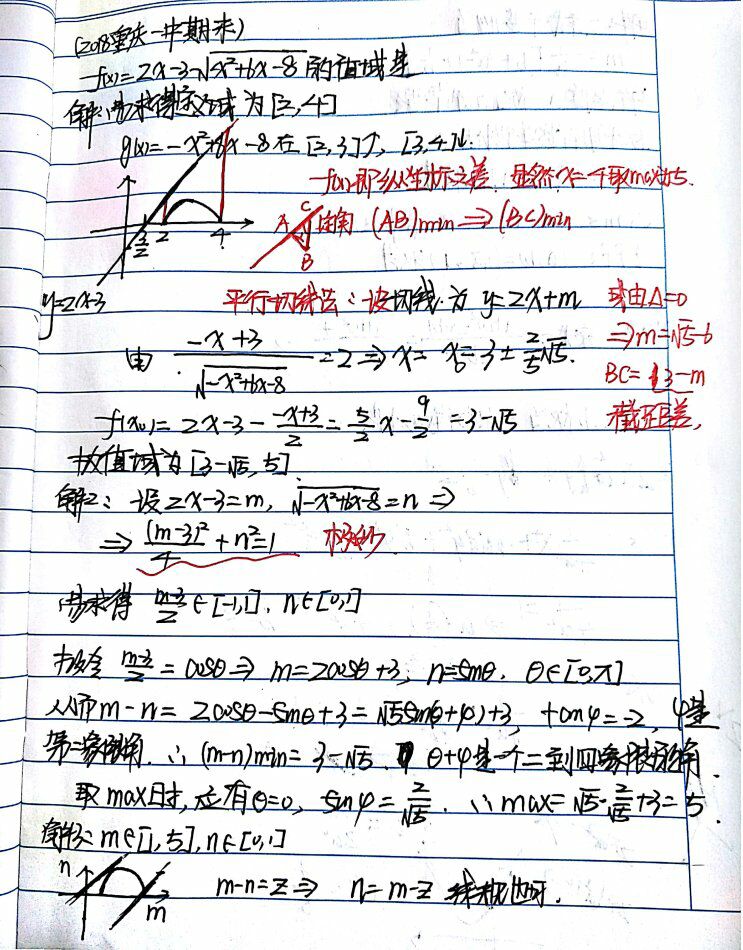 (2018重庆一中期末)
f(x)=2x-3-√-x²+6x-8 的值域是
解:易求得定义域为[2,4]
g(x)=-x²+6x-8在[2,3]↑, [3,4]↓.
f(x)即为纵坐标之差. 显然x=4取max为5.
C
A
B
直角 (AB)min⇒(BC)min
3/2 2 4
y=2x-3
平行切线法:设切线为 y=2x+m 或由Δ=0
⇒m=√5-6
由 (-x+3)/√-x²+6x-8 =2⇒x=x₀=3±2/5√5.
BC=|3-m
截距差,
f(x₀)=2x-3-(-x+3)/2=5/2x-9/2=3-√5
故值域为[3-√5,5]
解2:设2x-3=m, √-x²+6x-8=n⇒
⇒(m-3)²/4+n²=1 极妙
易求得 (m-3)/2∈[-1,1], n∈[0,1]
故令 (m-3)/2=cosθ⇒m=2cosθ+3, n=sinθ. θ∈[0,π]
从而m-n=2cosθ-sinθ+3=√5sin(θ+φ)+3, tanφ=-2, φ是
第二象限角. ∴(m-n)min=3-√5. θ+φ是一个二到四象限的角.
取max时,应有θ=0, sinφ=2/√5. ∴max=√5·2/√5+3=5.
解3:m∈[1,5],n∈[0,1]
n
m
m-n=z⇒n=m-z